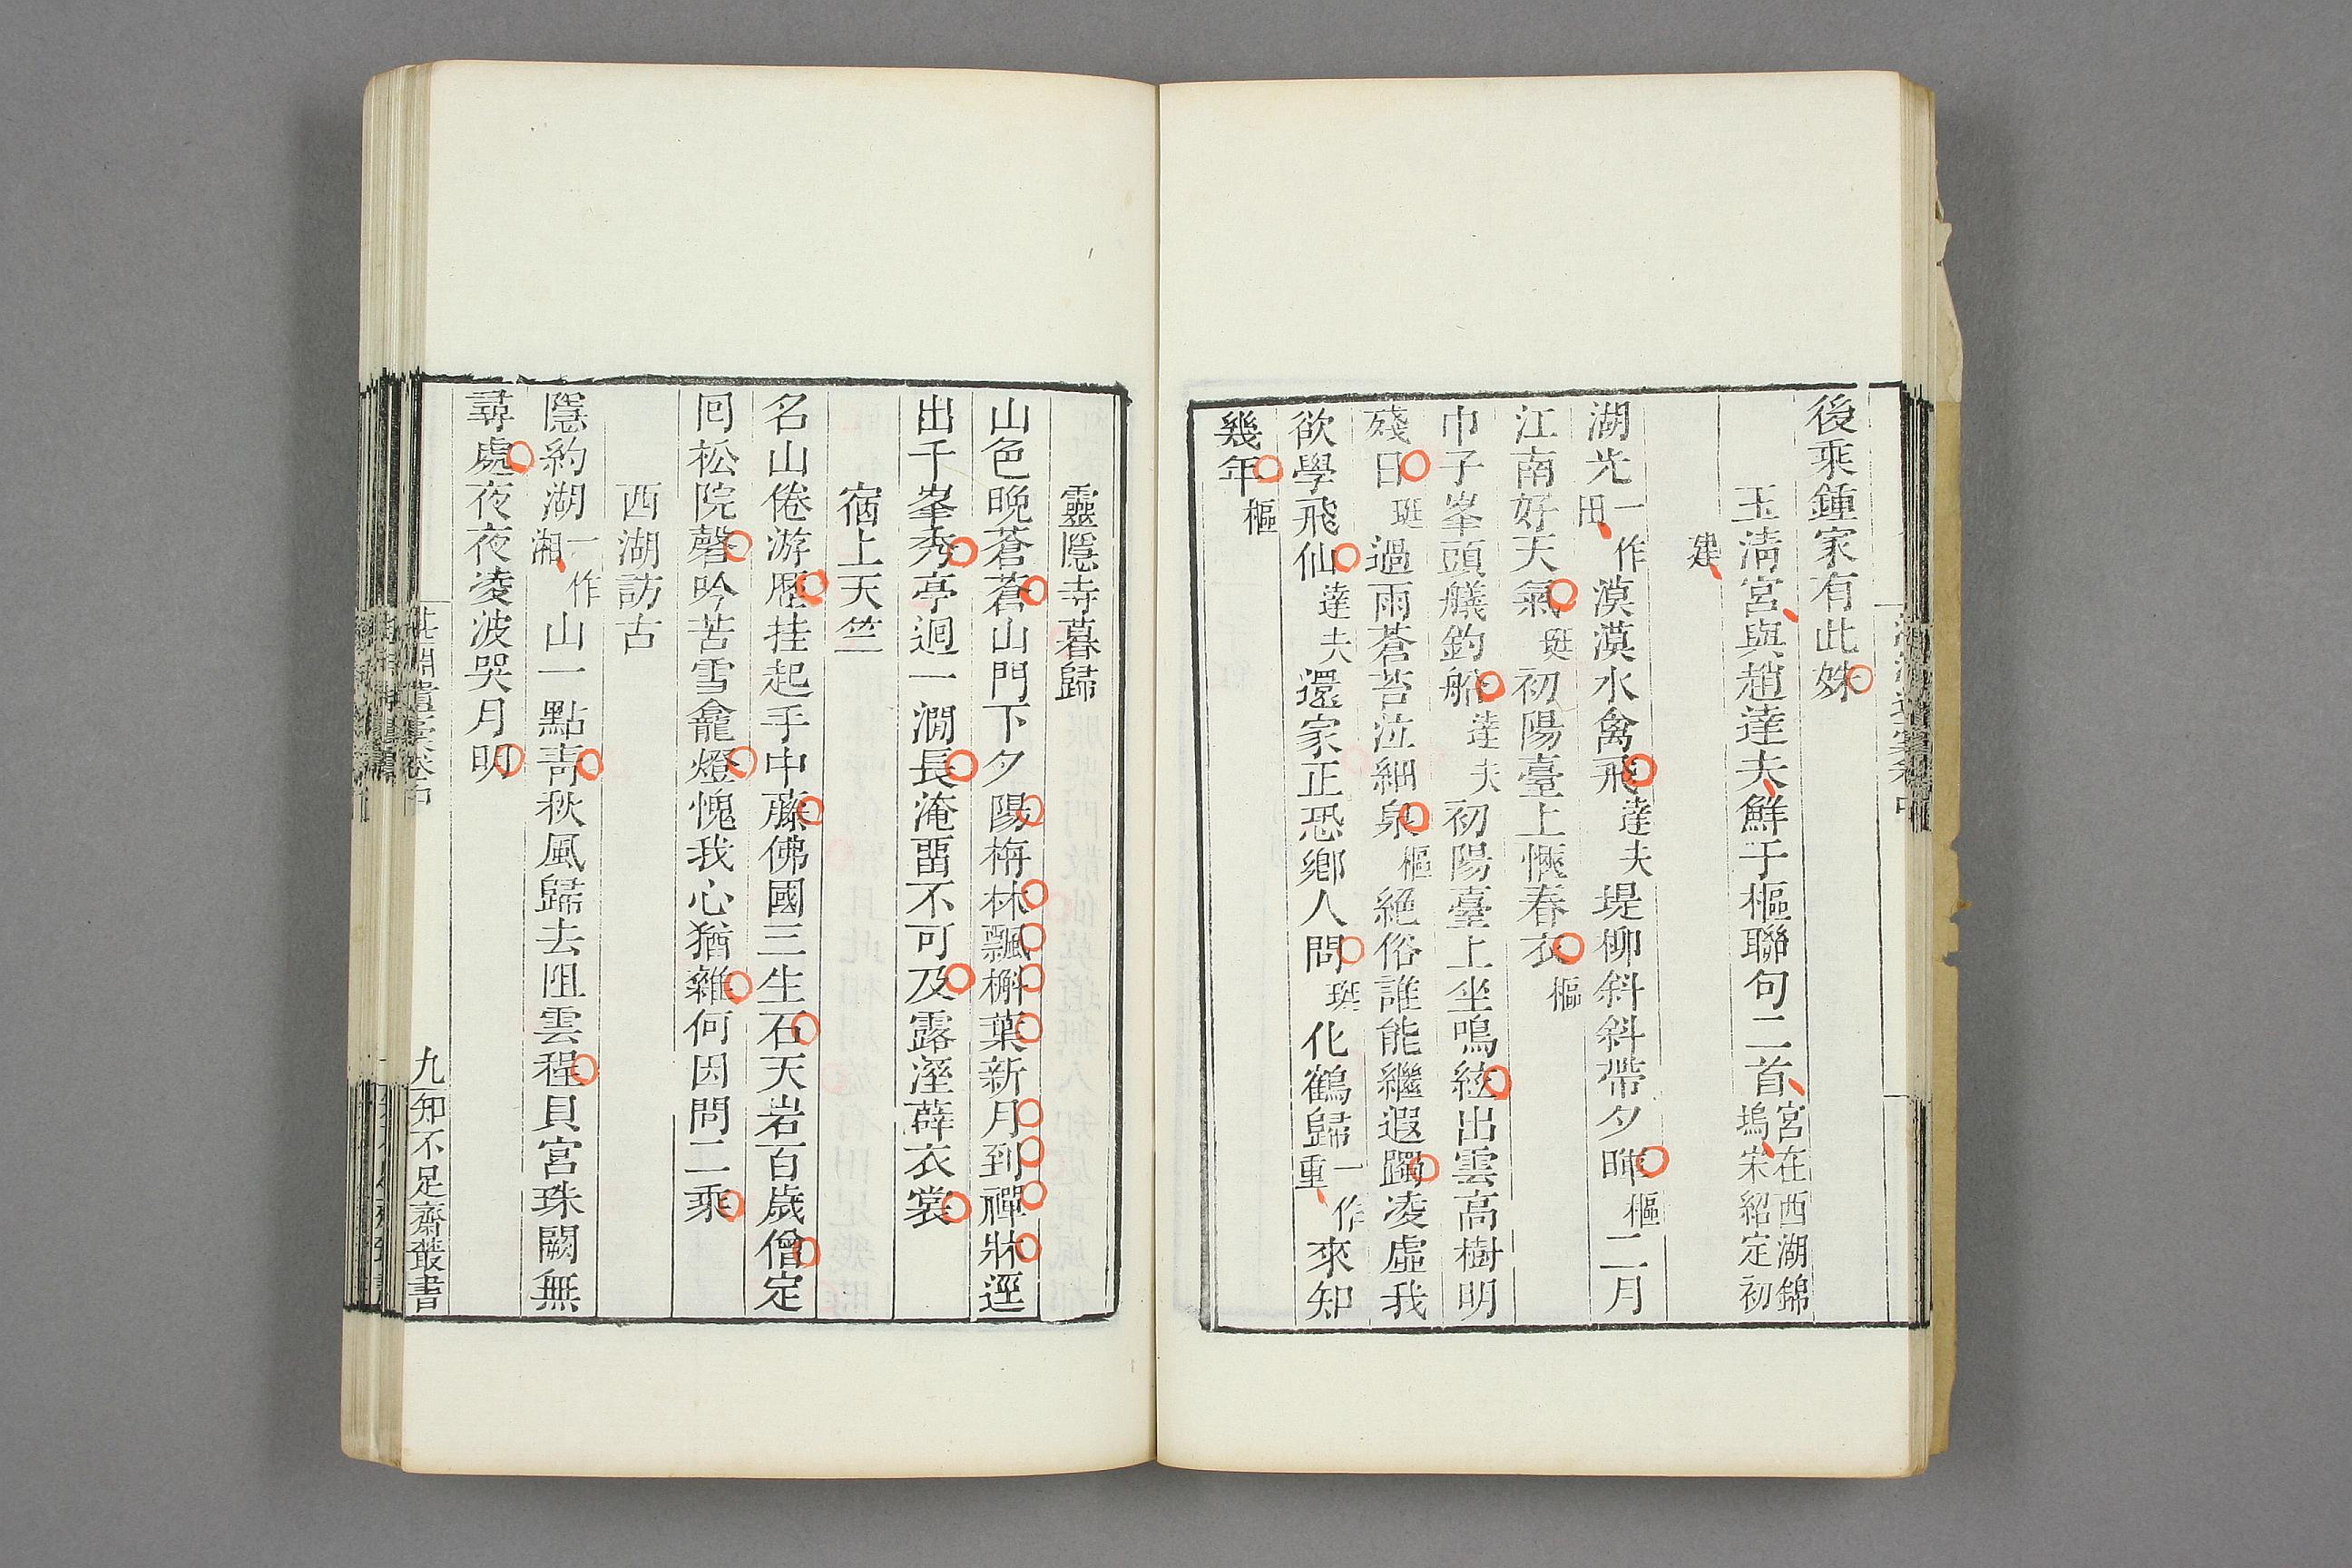 後乘鍾家有此姝
玉淸宮與趙達夫鮮于樞聯句二首宮在西湖錦
塢宋紹定初
建
湖光一作
田漠漠水禽飛達夫堤柳斜斜帶夕暉樞二月
江南好天氣珽初陽臺上愜春衣樞
巾子峯頭艤釣船達夫初陽臺上坐鳴絃出雲高樹明
殘日珽過雨蒼苔泣細泉樞絕俗誰能繼遐躅凌虛我
欲學飛仙達夫還家正恐鄉人問珽化鶴歸一作
重來知
幾年樞
靈隱寺暮歸
山色晚蒼蒼山門下夕陽栴林飄槲葉新月到禪牀逕
出千峯秀亭迥一澗長淹畱不可及露溼薜衣裳
宿上天竺
名山倦游歷挂起手中藤佛國三生石天岩百歲僧定
囘松院磬吟苦雪龕燈愧我心猶雜何因問二乘
西湖訪古
隱約湖一作
湘山一點靑秋風歸去阻雲程貝宮珠闕無
尋處夜夜凌波哭月明
九 知不足齋叢書